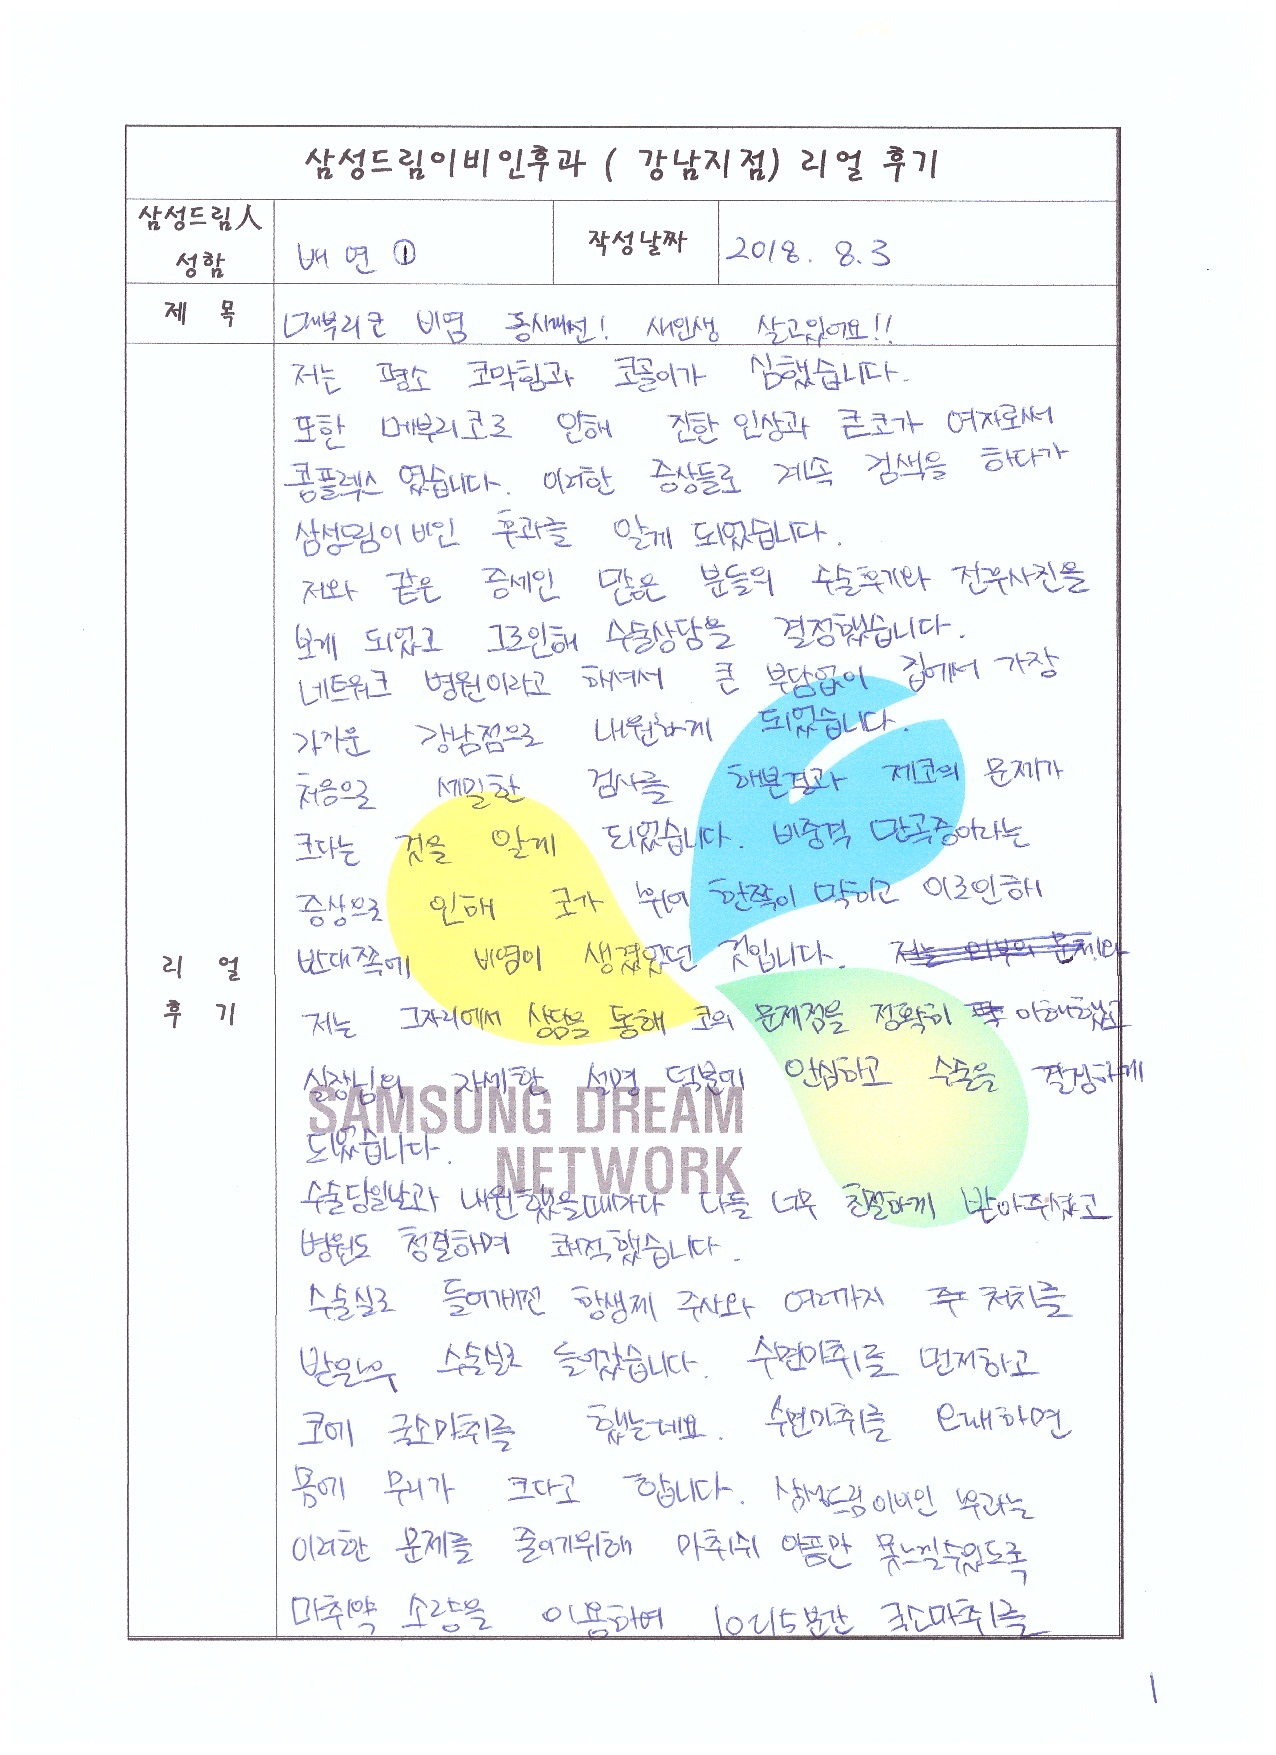 삼성드림이비인후과 ( 강남지점) 리얼 후기
삼성드림人
성함
배 연 ①
작성날짜
2018. 8. 3
제 목
매부리코 비염 동시개선! 새인생 살고있어요!!
저는 평소 코막힘과 코골이가 심했습니다.
또한 메부리코로 인해 진한 인상과 큰코가 여자로써
콤플렉스 였습니다. 이러한 증상들로 계속 검색을 하다가
삼성드림이비인 후과를 알게 되었습니다.
저와 같은 증세인 많은 분들의 수술후기와 전후사진을
보게 되었고 그로인해 수술상담을 결정했습니다.
네트워크 병원이라고 하셔서 큰 부담없이 집에서 가장
가까운 강남점으로 내원하게 되었습니다.
처음으로 세밀한 검사를 해본결과 제코의 문제가
크다는 것을 알게 되었습니다. 비중격 만곡증이라는
증상으로 인해 코가 휘어 한쪽이 막히고 이로인해
반대쪽에 비염이 생겼었던 것입니다. 저는 외부의 문제와
리 얼
후 기
저는 그자리에서 상담을 통해 코의 문제점을 정확히 이해했고
실장님의 자세한 설명 덕분에 안심하고 수술을 결정하게
되었습니다.
SAMSUNG DREAM
NETWORK
수술당일날과 내원했을때마다 다들 너무 친절하게 받아주셨고
병원도 청결하며 쾌적했습니다.
수술실로 들어가기전 항생제 주사와 여러가지 처치를
받은후 수술실로 들어갔습니다. 수면마취를 먼저하고
코에 국소마취를 했는데요. 수면마취를 오래하면
몸에 무리가 크다고 합니다. 삼성드림이비인 후과는
이러한 문제를 줄이기위해 마취시 아픔만 못느낄수있도록
마취약 소량을 이용하여 10여분간 국소마취를
1